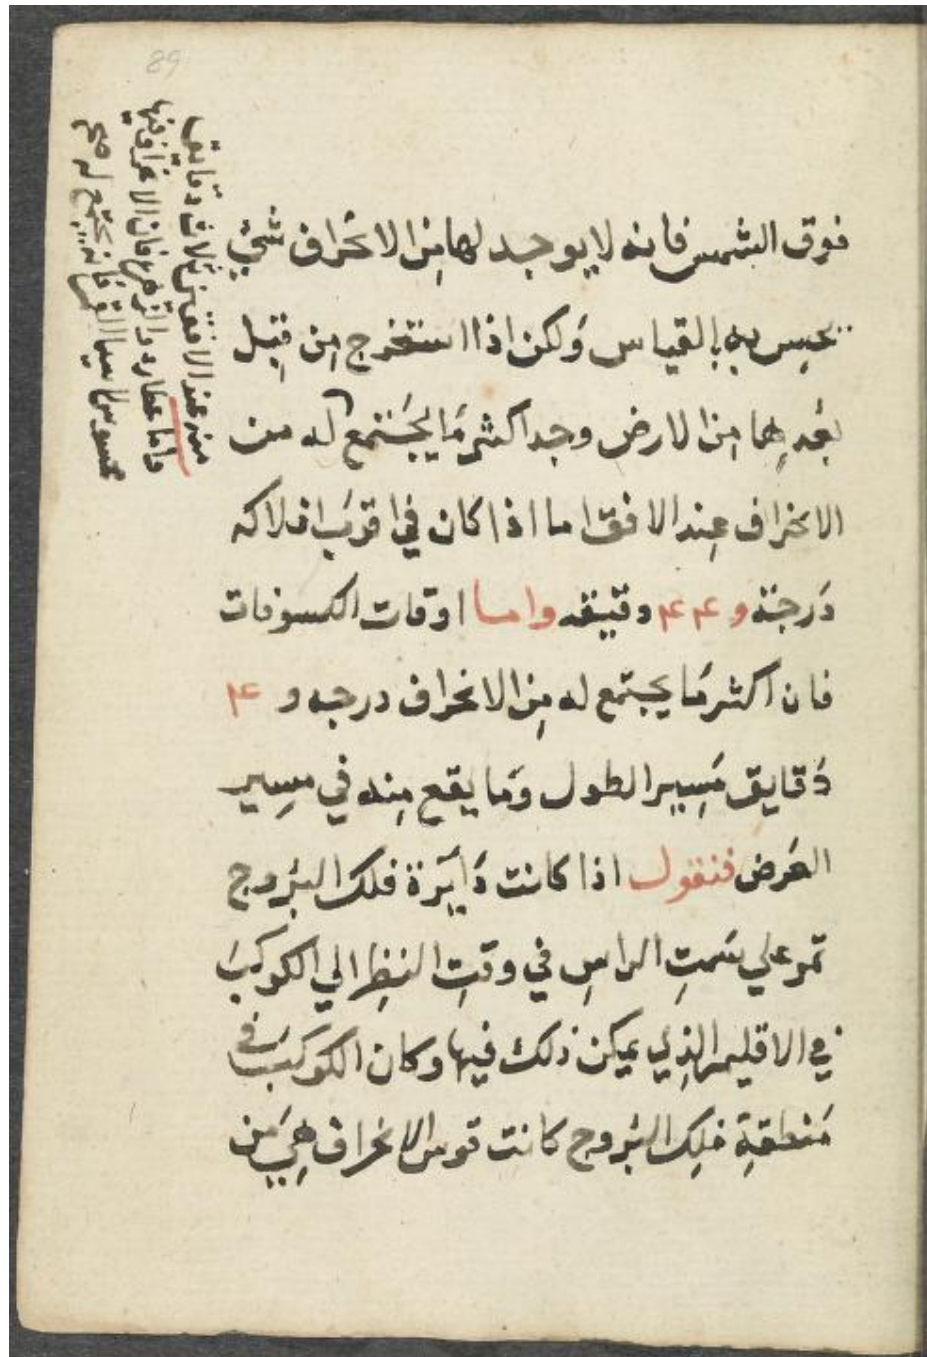 89
فوق الشمس فانه لا يوجد لها من الانحراف شيٍ
يحس به بالقياس وَلكن اذا استخرج مِن قِبل
بُعدِها من الارض وجد اكثر مَا يَجتمع له من
الانحراف عِند الافق اما اذا كان في اقرَب افلاكه
دَرجَة و ۴۴ دقيقه واما اوقات الكسوفات
فان اكثر مَا يجتمع له مِن الانحراف درجه و ۴
دَقايق مَسِير الطول وَما يقع مِنه في مسِير
العَرض فنقول اذا كانت دَايَرة فلك البُروج
تمر علي سَمتِ الراسِ في وقتِ النظِر الي الكوكبَ
في الاقليم الذِي يمكن ذلك فيها وكان الكوكبَ في
مَنطقةِ فلِك البُروج كانت قوس الانحراف هِيَ من
منه عند الافق من ثلاث دقايق
واما عطارد والزهره فان الانحراف فيها
محسوس لا سيما القمر فانه يجتمع له صح